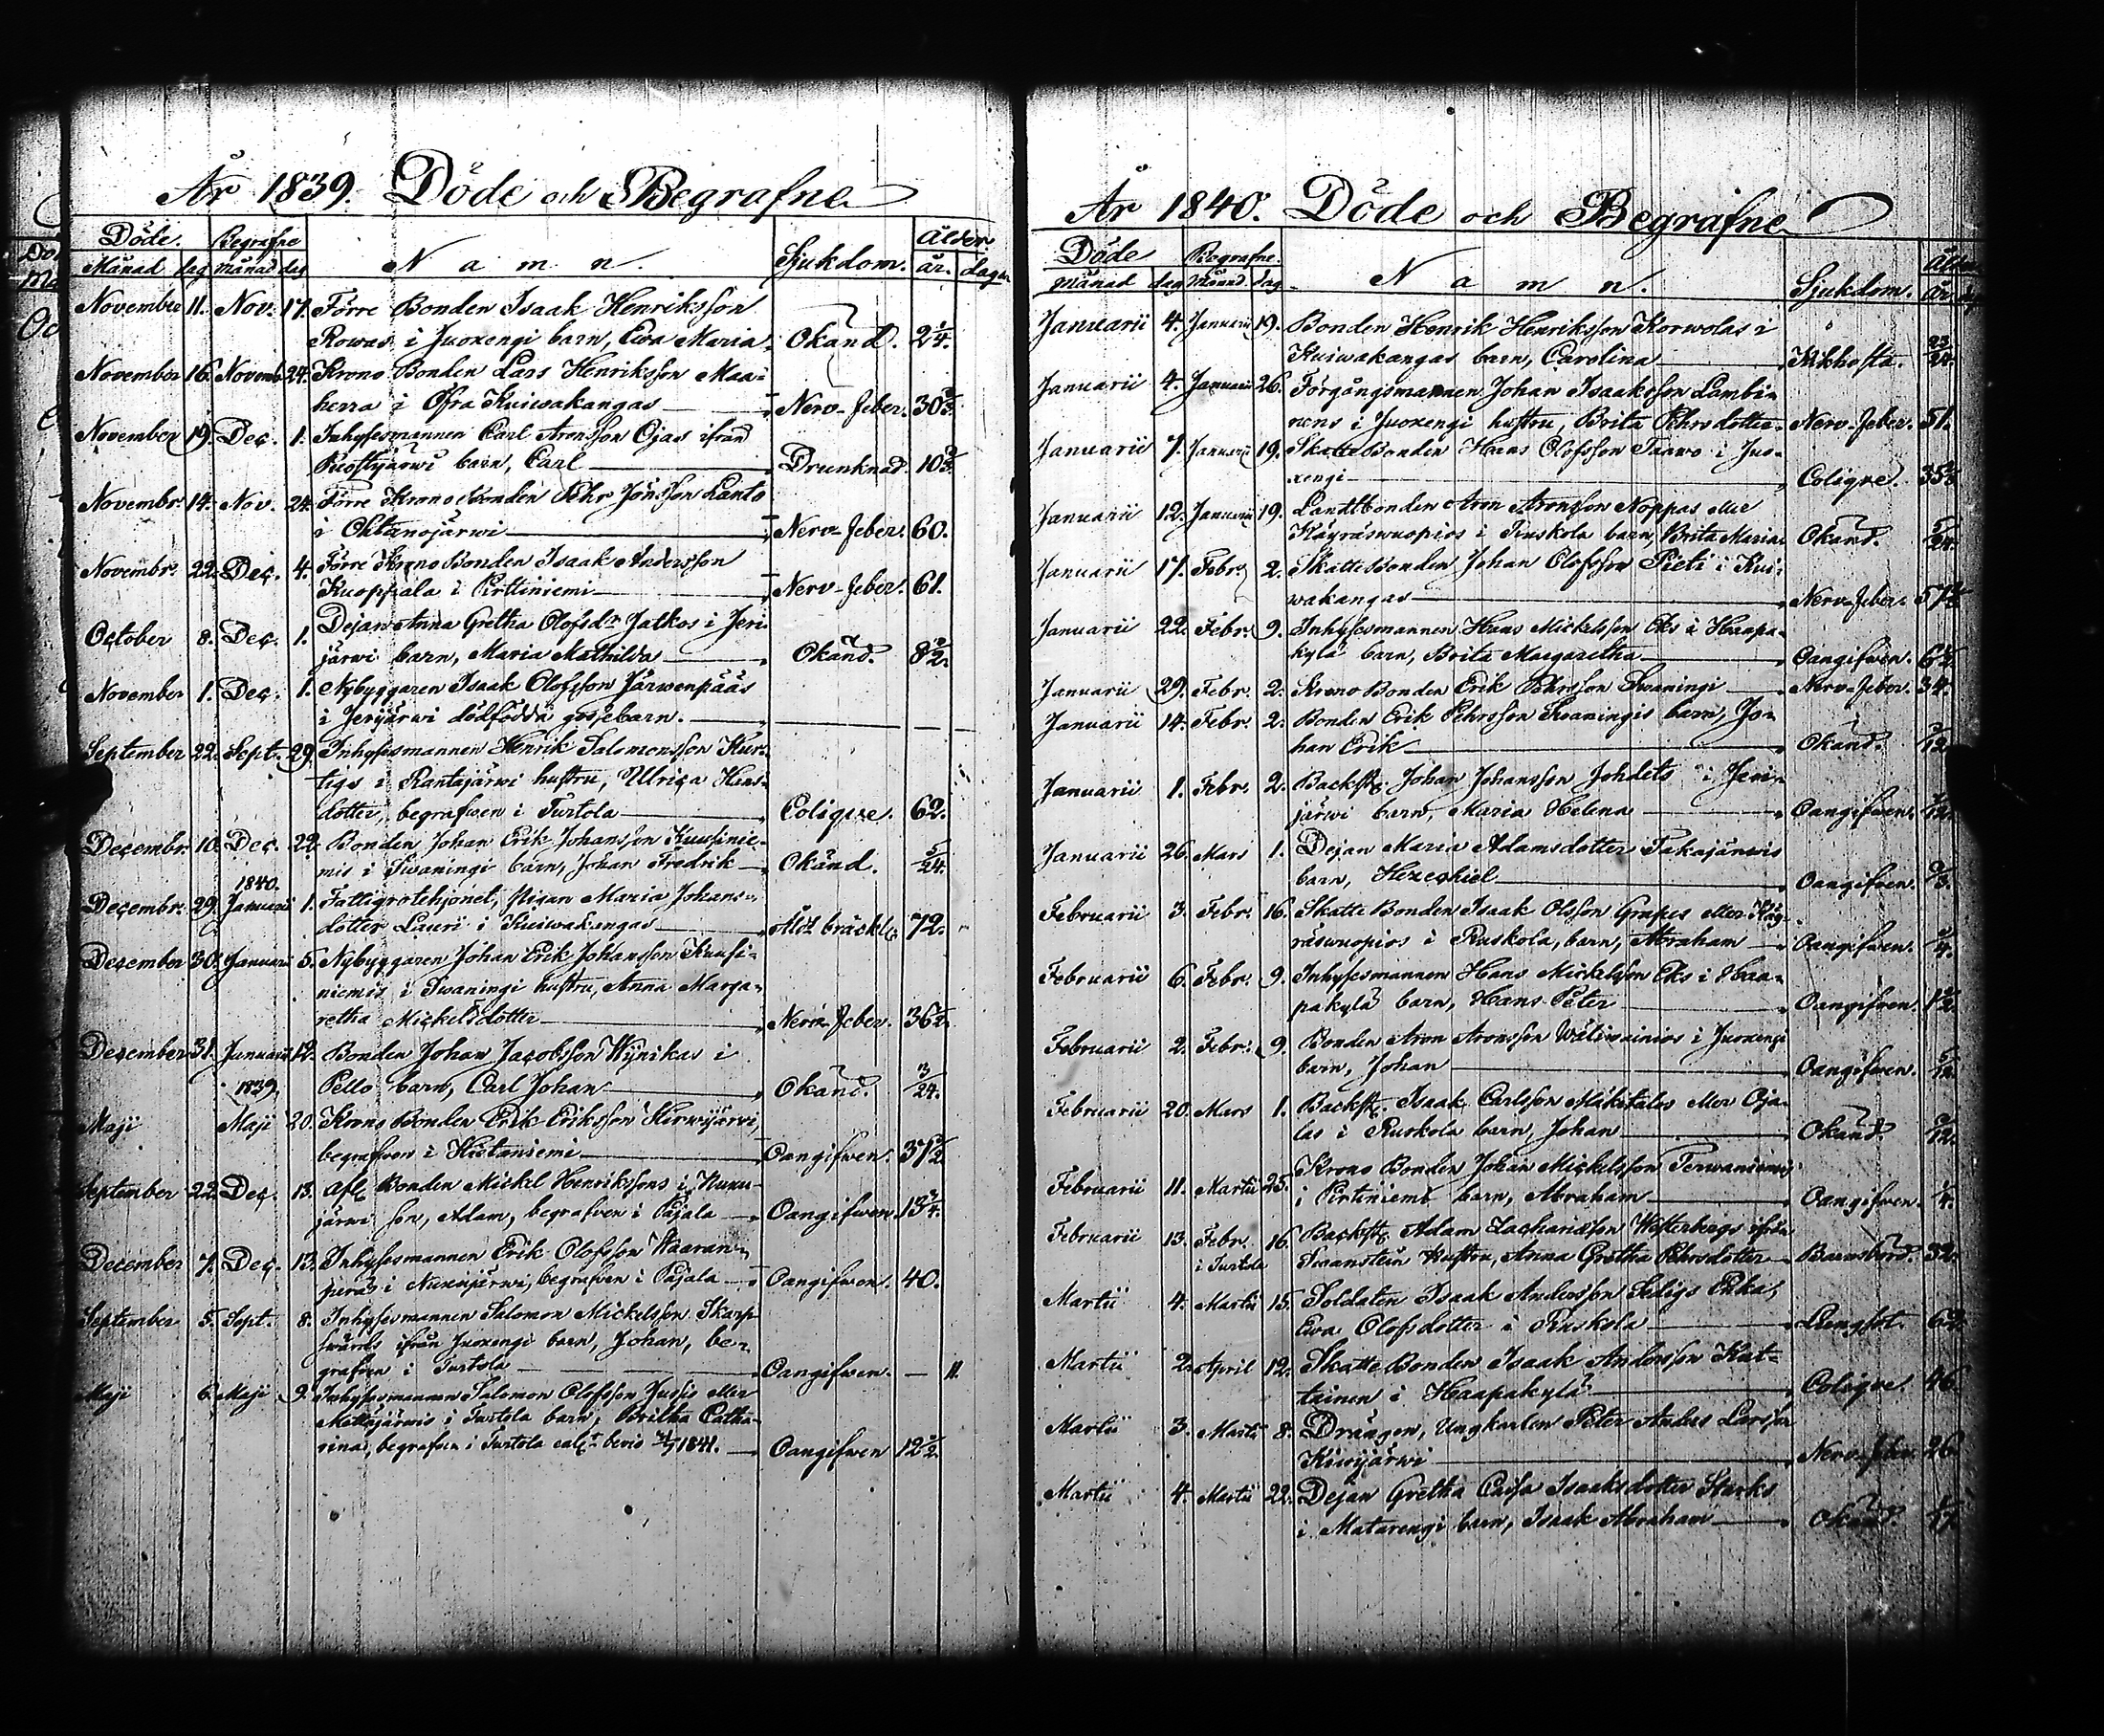 År 1839. Döde och Begrafne
Döde. Begrafne Namn. Sjukdom. Ålder.
Månad dag Månad dag år. dagar
November 11. Nov. 17. Förre Bonden Isaak Henriksson
Rowas i Juoxengi barn, Ewa Maria Okänd. 2 1/4.
November 16. Novemb. 24. Krono Bonden Lars Henriksson Maa-
herra i Öfra Kuiwakangas Nerv-feber. 30
November 19. Dec. 1. Inhysesmannen Carl Aronsson Ojas ifrån
barn, Carl Drunknad. 10
Novembr. 14. Nov. 24. Förre Krono Bonden Pehr Jönsson Lanto
i Nerv-feber. 60.
Novembr. 22. Dec. 4. Förre Krono Bonden Isaak Andersson
Kuoppala i Pirttiniemi Nerv-feber. 61.
October 8. Dec. 1. Dejan Anna Gretha Olofsdr Jatkos i Jeri-
järwi barn, Maria Mathilda Okänd. 8 1/2.
November 1. Dec. 1. Nybyggaren Isaak Olofsson Järwenpääs
i Jerijärwi dödfödda gossebarn.
September 22. Sept. 29. Inhysesmannen Henrik Salomonsson Kur-
tigs i Rantajärwi hustru, Ulrica Hans-
dotter, begrafven i Turtola Colique. 62.
Decembr. 10. Dec. 22. Bonden Johan Erik Johansson Kuusinie-
mis i Swaningi barn, Johan Fredrik Okänd. /24.
1840.
Decembr. 29. Januarii 1. Fattigrotehjonet, Pigan Maria Johans-
dotter Lauri i Kuiwakangas Åld. bräckl. 72.
December 30. Januarii 5. Nybyggaren Johan Erik Johansson Kuusi-
niemis i Swaningi hustru, Anna Marga-
retha Mickelsdotter Nerv-feber. 36 1/2.
December 31. Januarii 12. Bonden Johan Jacobsson Wynikas i
Pello barn, Carl Johan Okänd. 3/24.
1839.
Maji Maji 20. Krono Bonden Erik Eriksson Kirwijärwi,
begrafven i Hietaniemi Oangifwen. 37 1/2.
September 22. Dec. 13. Afl. Bonden Mickel Henrikssons i
järwi son, Adam, begrafven i Pajala Oangifwen. 13 3/4.
December 7. Dec. 13. Inhysesmannen Erik Olofsson Waaran-
perä i begrafven i Pajala Oangifwen. 40.
September 5. Sept. 8. Inhysesmannen Salomon Mickelsson Skarp-
swärds ifrån Juoxengi barn, Johan, be-
grafven i Turtola Oangifwen. — 11.
Maji 6. Maji 9. Inhysesmannen Salomon Olofsson Jussis eller
Mettäjärwis i Turtola barn, Britha Catha-
rina, begrafven i Turtola enl. bevis 1841. Oangifwen 12 1/2.
År 1840. Döde och Begrafne
Döde Begrafne. Namn. Sjukdom. Ålder
månad dag Månad. dag År
Januarii 4. Januarii 19. Bonden Henrik Henriksson Korwolas i
Kuiwakangas barn, Carolina Kikhosta. 23/24.
Januarii 4. Januarii 26. Förgångsmannen Johan Isaaksson Lambi-
nens i Juoxengi hustru, Brita Pehrsdotter Nerv-feber. 51.
Januarii 7. Januarii 19. Skatte Bonden Hans Olofsson Taawo i Juo-
xengi Colique. 35
Januarii 12. Januarii 19. Landtbonden Aron Aronsson Noppas eller
Käyräswuopios i Ruskola barn, Brita Maria Okänd. 5/24.
Januarii 17. Febr. 2. Skatte Bonden Johan Olofsson Pieti i Kui-
wakangas Nerv-feber. 57
Januarii 22. Febr. 9. Inhysesmannen Hans Mickelsson Eks i Haapa-
kylä barn, Brita Margaretha Oangifwen. 6 1/2.
Januarii 29. Febr. 2. Krono Bonden Erik Pehrsson Swaningi Nerv-feber. 34.
Januarii 14. Febr. 2. Bonden Erik Pehrsson Swaningis barn, Jo-
han Erik Okänd. /12.
Januarii 1. Febr. 2. Backst. Johan Johansson Johdets i Jeri-
järwi barn, Maria Helena Oangifwen. /12.
Januarii 26. Mars 1. Dejan Maria Adamsdotter Takajärwis
barn, Hezechiel Oangifwen.
Februarii 3. Febr. 16. Skatte Bonden Isaak Olsson Grapes eller Käy-
räswuopios i Ruskola, barn, Abraham Oangifwen. /4.
Februarii 6. Febr. 9. Inhysesmannen Hans Mickelsson Eks i Haa-
pakylä barn, Hans Peter Oangifwen. 1 1/2.
Februarii 2. Febr. 9. Bonden Aron Aronsson Wäliwainios i Juoxengi
barn, Johan Oangifwen. /12.
Februarii 20. Mars 1. Backst. Isaak Carlsson Mäkitalos eller Oja-
las i Ruskola barn, Johan Okänd. /12.
Februarii 11. Martii 25. Krono Bonden Johan Mickelsson Terwaniemis
i Pirtiniemi barn, Abraham Oangifwen. /4.
Februarii 13. Febr. 16. Backst. Adam Zachrisson Westerbergs ifrån
i Turtola Swanstein hustru, Anna Gretha Pehrsdotter Barnsbörd. 32.
Martii 4. Martii 15. Soldaten Isaak Andersson Seligs Enka,
Ewa Olofsdotter i Ruskola Lungsot. 62.
Martii 2. April 12. Skatte Bonden Isaak Andersson Kut-
tainen i Haapakylä Colique. 46
Martii 3. Martii 8. Drängen, Ungkarlen Peter Anders Larsson
Kiwijärwi Nerv-feber. 26
Martii 4. Martii 22. Dejan Gretha Caisa Isaaksdotter Starks
i Matarengi barn, Isaak Abraham Okänd